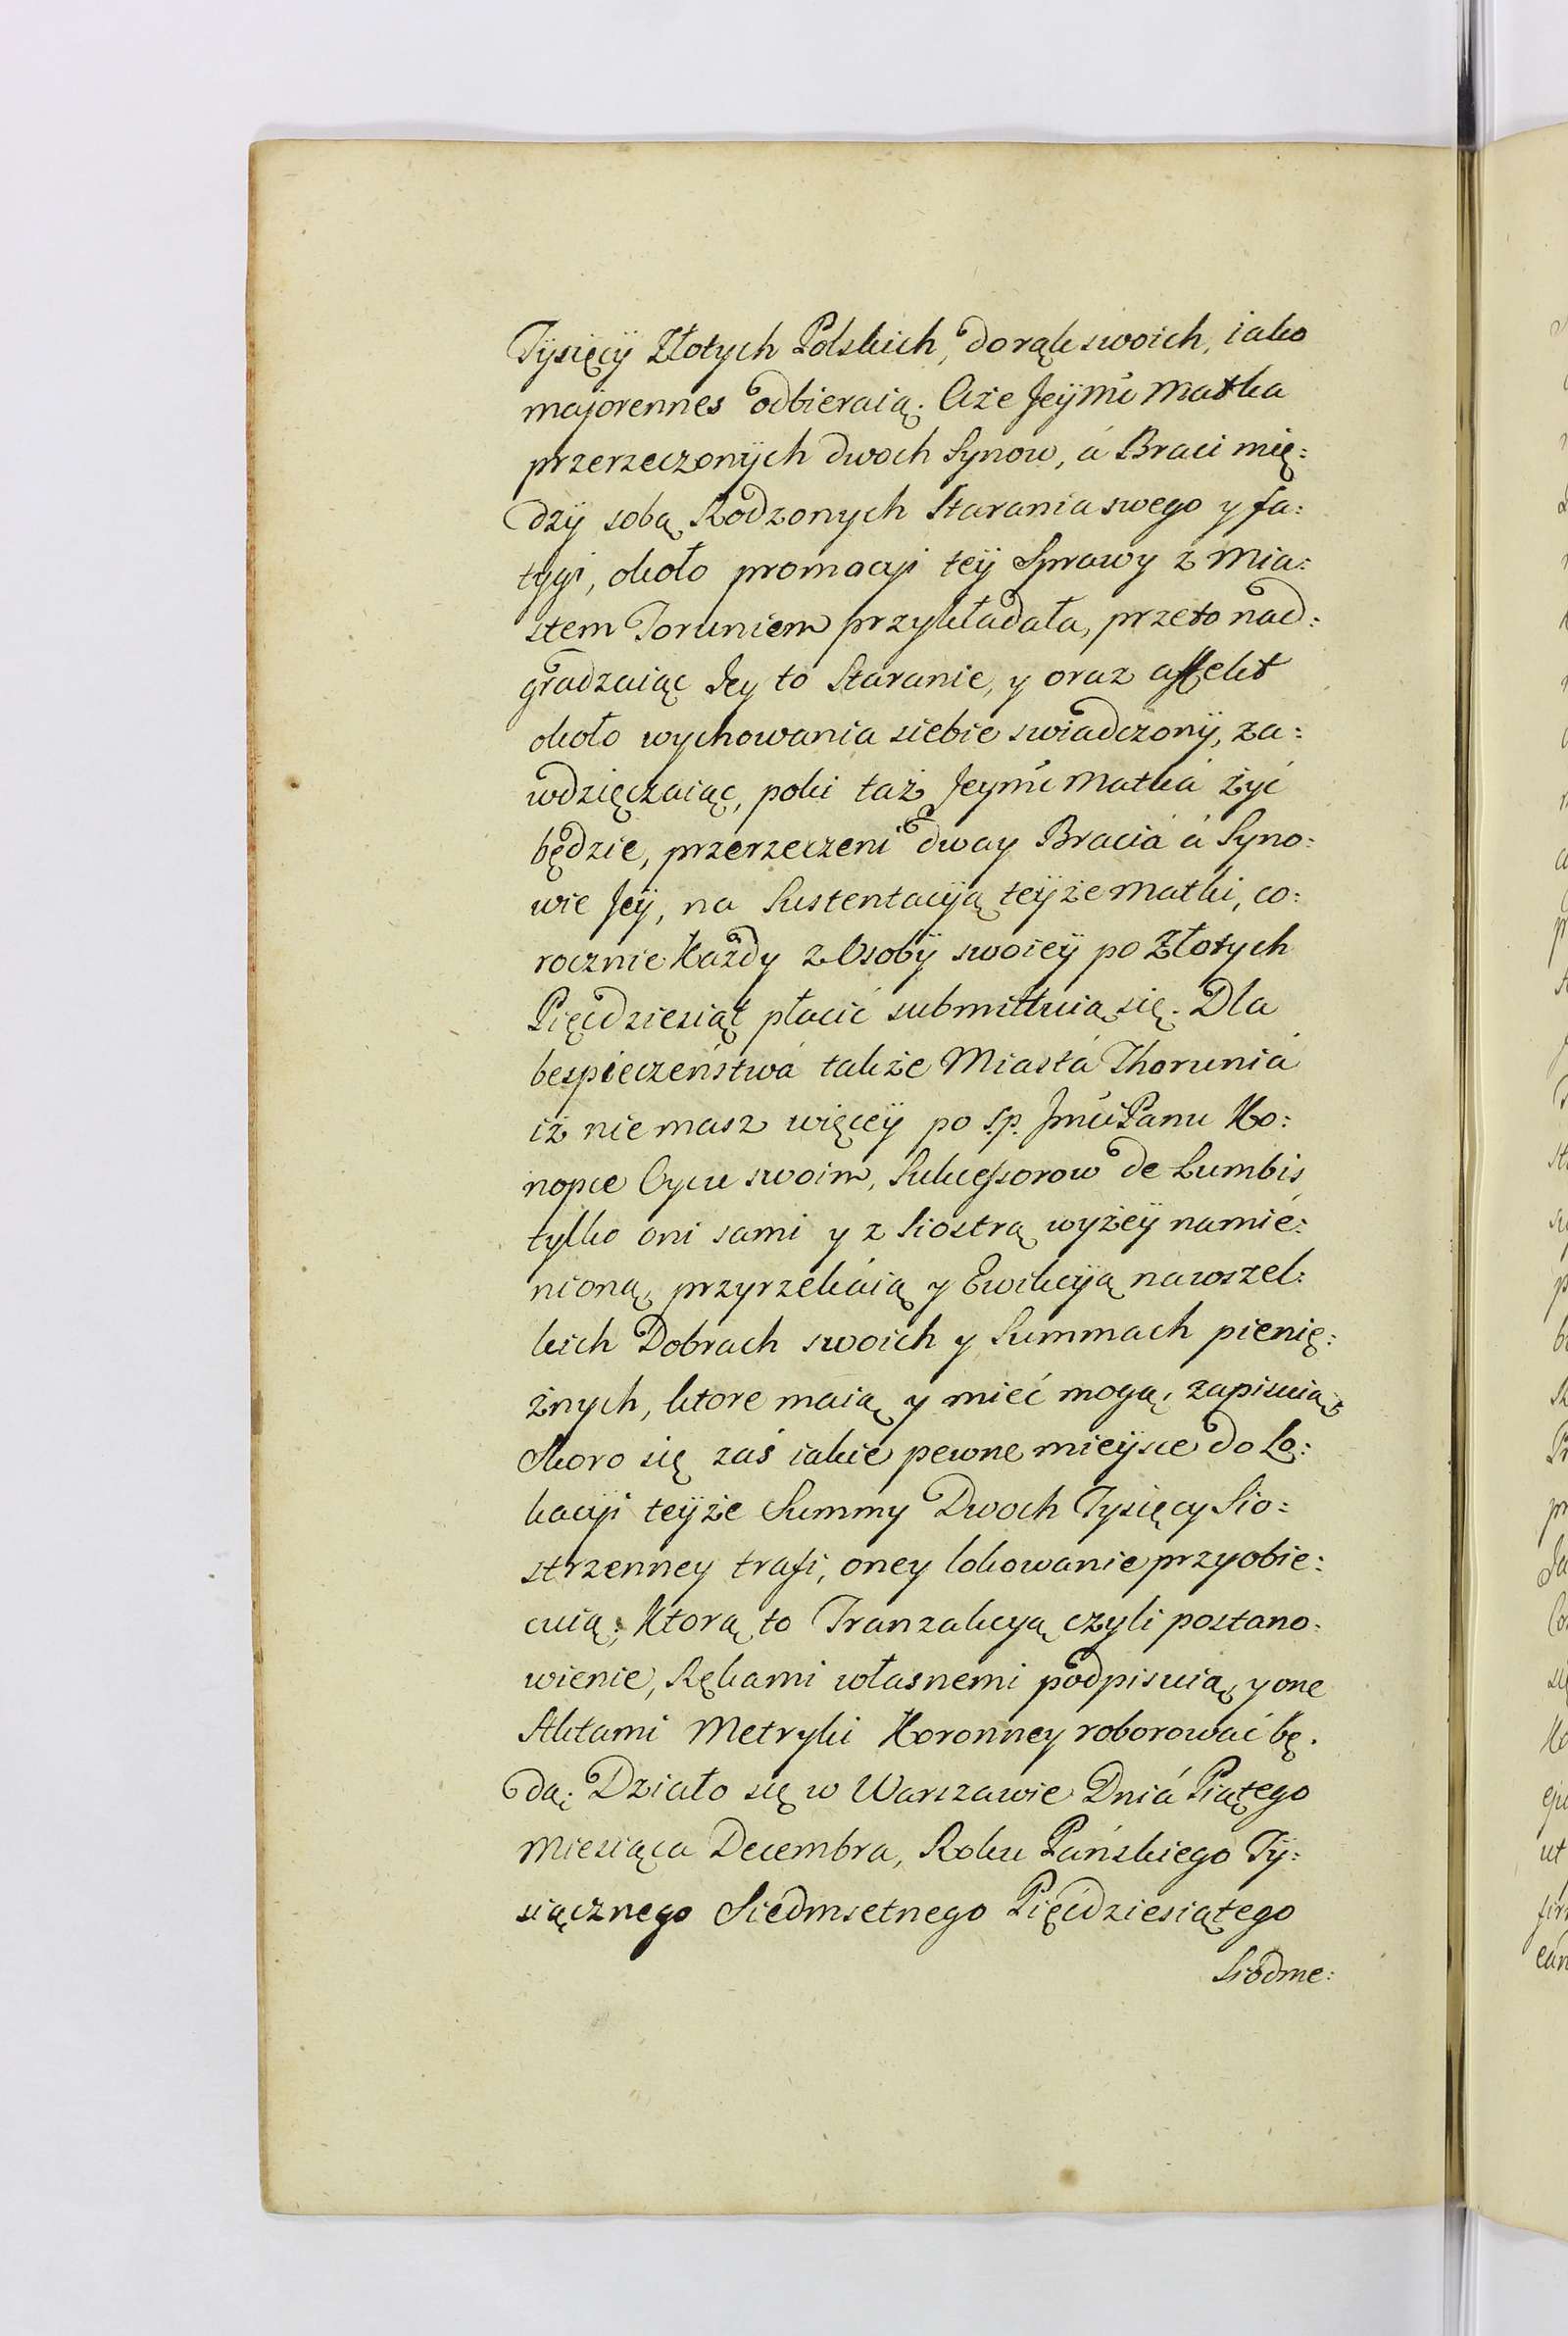 Tysięcÿ Złotych Polskich, do rąk swoich, iako
majorennes odbieraią. Aże Jeÿmć Matka
przerzeczonÿch dwoch Synow, á Braci mię:
dzÿ sobą Rodzonych Starania swego y fa:
tygi, około promocyi teÿ Sprawy z Mia:
stem Toruniem przykładała, przeto nad:
gradzaiąc Jey to Staranie, y oraz affekt
około wychowania siebie swiadczonÿ, za:
wdzięczaiąc, poki taż Jeymć Matká żyć
będzie, przerzeczeni dway Braciá á Syno:
wie Jeÿ, na Sustentacÿą teÿże Matki, co:
rocznie Każdy z Osobÿ swoieÿ po Złotych
Pięcdziesiąt płacić submittuią się. Dla
bespieczeństwá także Miastá Thoruniá
iż nie masz więceÿ po s.p. Jmći Panu Ko:
nopce Oycu swoim, Sukcessorow de Lumbis
tylko oni sami y z Siostrą wyżeÿ namie:
nioną, przyrzekáią y Ewikcÿą na wszel:
kich Dobrach swoich y Summach pienię:
żnych, ktore maią y mieć mogą, zapisuią.
Skoro się zaś iakie pewne mieÿsce do Lo:
kacÿi teÿże Summy Dwoch Tysięcy Sio:
strzenney trafi, oney lokowanie przyobie:
cuią; Ktorą to Tranzakcyą czyli postano:
wienie, Rękami własnemi podpisuią, y one
Aktami Metryki Koronney roborować bę.
dą; Działo się w Warszawie Dniá Piątego
Miesiąca Decembra, Roku Pańskiego Tÿ:
siącznego Siedmsetnego Pięćdziesiątego
Siodme: